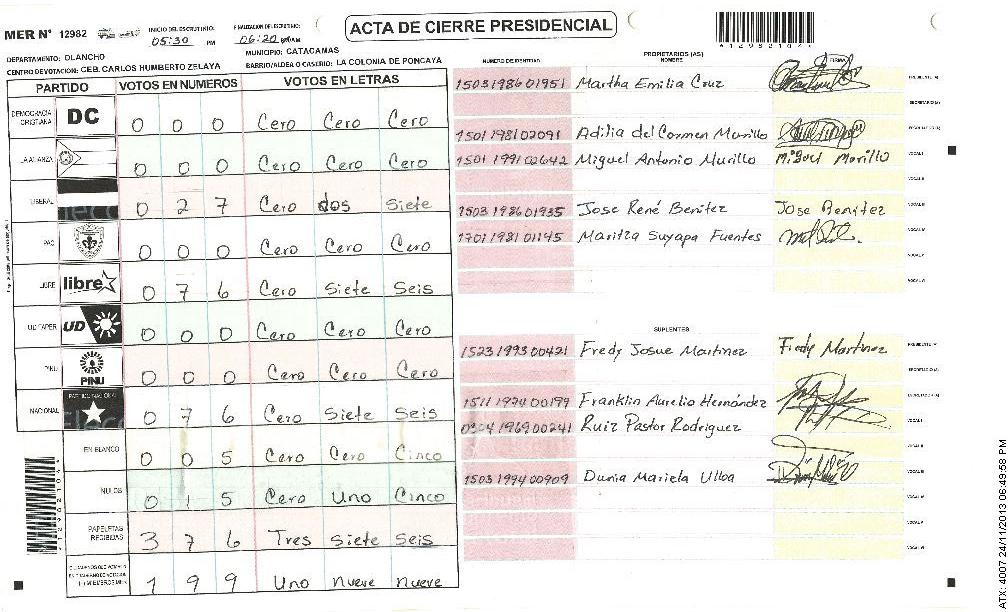 ACTA DE CIERRE PRESIDENCIAL
MER N° 12982
INICIO DEL ESCRUTINIO:
05:30 PM
FINALIZACION DEL ESCRUTINIO:
06:20
DEPARTAMENTO: OLANCHO
MUNICIPIO: CATACAMAS
CENTRO DE VOTACION: CEB. CARLOS HUMBERTO ZELAYA
BARRIO/ALDEA O CASERIO: LA COLONIA DE PONCAYA
PARTIDO VOTOS EN NUMEROS VOTOS EN LETRAS
DEMOCRACIA CRISTIANA DC 0 0 0 Cero Cero Cero
LA ALIANZA 0 0 0 Cero Cero Cero
LIBERAL 0 2 7 Cero dos Siete
PAC 0 0 0 Cero Cero Cero
LIBRE libre 0 7 6 Cero Siete Seis
UD FAPER UD 0 0 0 Cero Cero Cero
PINU PINU 0 0 0 Cero Cero Cero
NACIONAL PARTIDO NACIONAL 0 7 6 Cero Siete Seis
EN BLANCO 0 0 5 Cero Cero Cinco
NULOS 0 1 5 Cero Uno Cinco
PAPELETAS RECIBIDAS 3 7 6 Tres Siete Seis
1 9 9 Uno nueve nueve
*12982104*
NUMERO DE IDENTIDAD
PROPIETARIOS (AS)
NOMBRE
FIRMA
1503 1986 01951 Martha Emilia Cruz PRESIDENTE (A)
SECRETARIO (A)
1501 1981 02091 Adilia del Carmen Murillo ESCRUTADOR (A)
1501 1991 02642 Miguel Antonio Murillo Miguel Morillo VOCAL I
VOCAL II
1503 1986 01935 Jose René Benitez Jose Benitez VOCAL III
1701 1981 01145 Maritza Suyapa Fuentes VOCAL IV
VOCAL V
VOCAL VI
SUPLENTES
1523 1993 00421 Fredy Josue Martinez Fredy Martinez PRESIDENTE (A)
SECRETARIO (A)
1511 1974 00199 Franklin Aurelio Hernández ESCRUTADOR (A)
1969 00241 Ruiz Pastor Rodriguez VOCAL I
VOCAL II
1503 1994 00909 Dunia Mariela Ulloa VOCAL III
VOCAL IV
VOCAL V
VOCAL VI
ATX: 4007 24/11/2013 06:49:58 PM